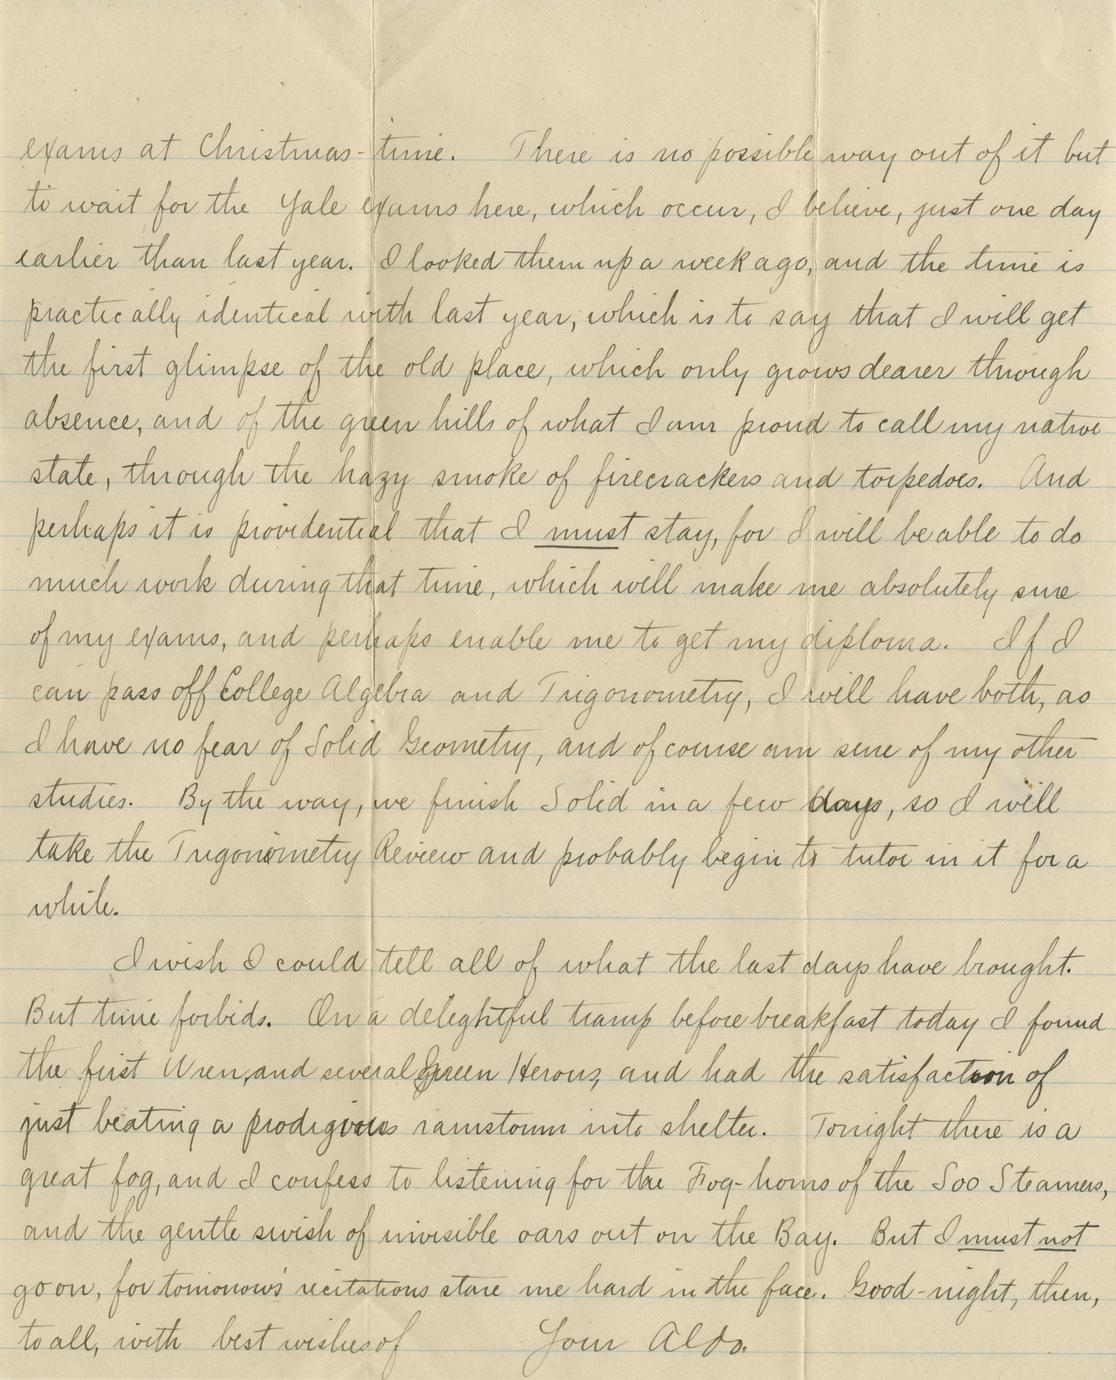 exams at Christmas-time. There is no possible way out of it but
to wait for the Yale exams here, which occur, I believe, just one day
earlier than last year. I looked them up a week ago, and the time is
practically identical with last year, which is to say that I will get
the first glimpse of the old place, which only grows dearer through
absence, and of the green hills of what I am proud to call my native
state, through the hazy smoke of firecrackers and torpedoes. And
perhaps it is providential that I must stay, for I will be able to do
much work during that time, which will make me absolutely sure
of my exams, and perhaps enable me to get my diploma. If I
can pass off College Algebra and Trigonometry, I will have both, as
I have no fear of Solid Geometry, and of course am sure of my other
studies. By the way, we finish Solid in a few days, so I will
take the Trigonometry Review and probably begin to tutor in it for a
while.
I wish I could tell all of what the last days have brought.
But time forbids. On a delightful tramp before breakfast today I found
the first Wren, and several Green Herons, and had the satisfaction of
just beating a prodigious rainstorm into shelter. Tonight there is a
great fog, and I confess to listening for the Fog-horns of the Soo Steamers,
and the gentle swish of invisible oars out on the Bay. But I must not
go on, for tomorrow's recitations stare me hard in the face. Good-night, then,
to all, with best wishes of Your Aldo.